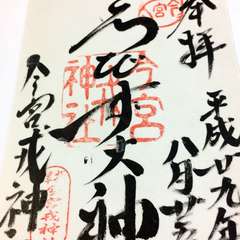 奉拝
平成廿九年
八月廿
ゑびす大神
今宮
戎
神社
今宮戎神